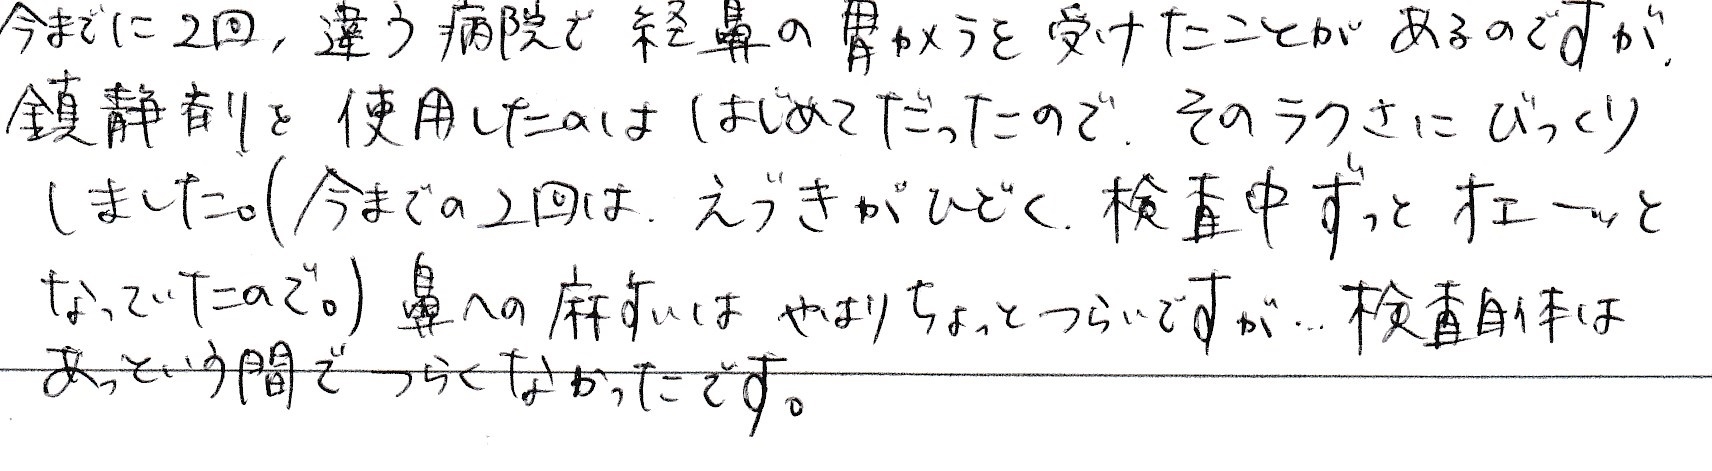 今までに2回, 違う病院で経鼻の胃カメラを受けたことがあるのですが,
鎮静剤を使用したのははじめてだったので、そのラクさにびっくり
しました。(今までの2回は、えづきがひどく、検査中ずっとオエーッと
なっていたので。) 鼻への麻すいはやはりちょっとつらいですが…検査自体は
あっという間でつらくなかったです。